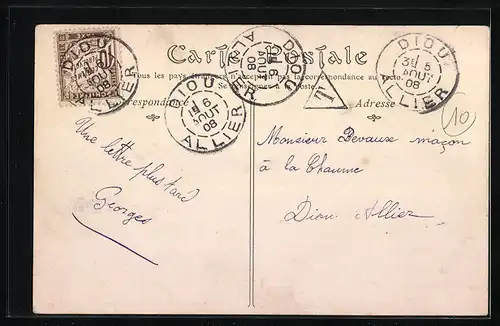 Carte Postale
Tous les pays étrangers n'acceptent pas la correspondance au recto.
Se renseigner à la Poste.
Correspondance
Adresse
DIOU
5
AOUT
08
ALLIER
DIOU
6
AOUT
08
ALLIER
DIOU
6
AOUT
08
ALLIER
DIOU
5
AOUT
08
ALLIER
T
10
Une lettre plus tard
Georges
Monsieur Devaux maçon
à la Chaume
Diou Allier